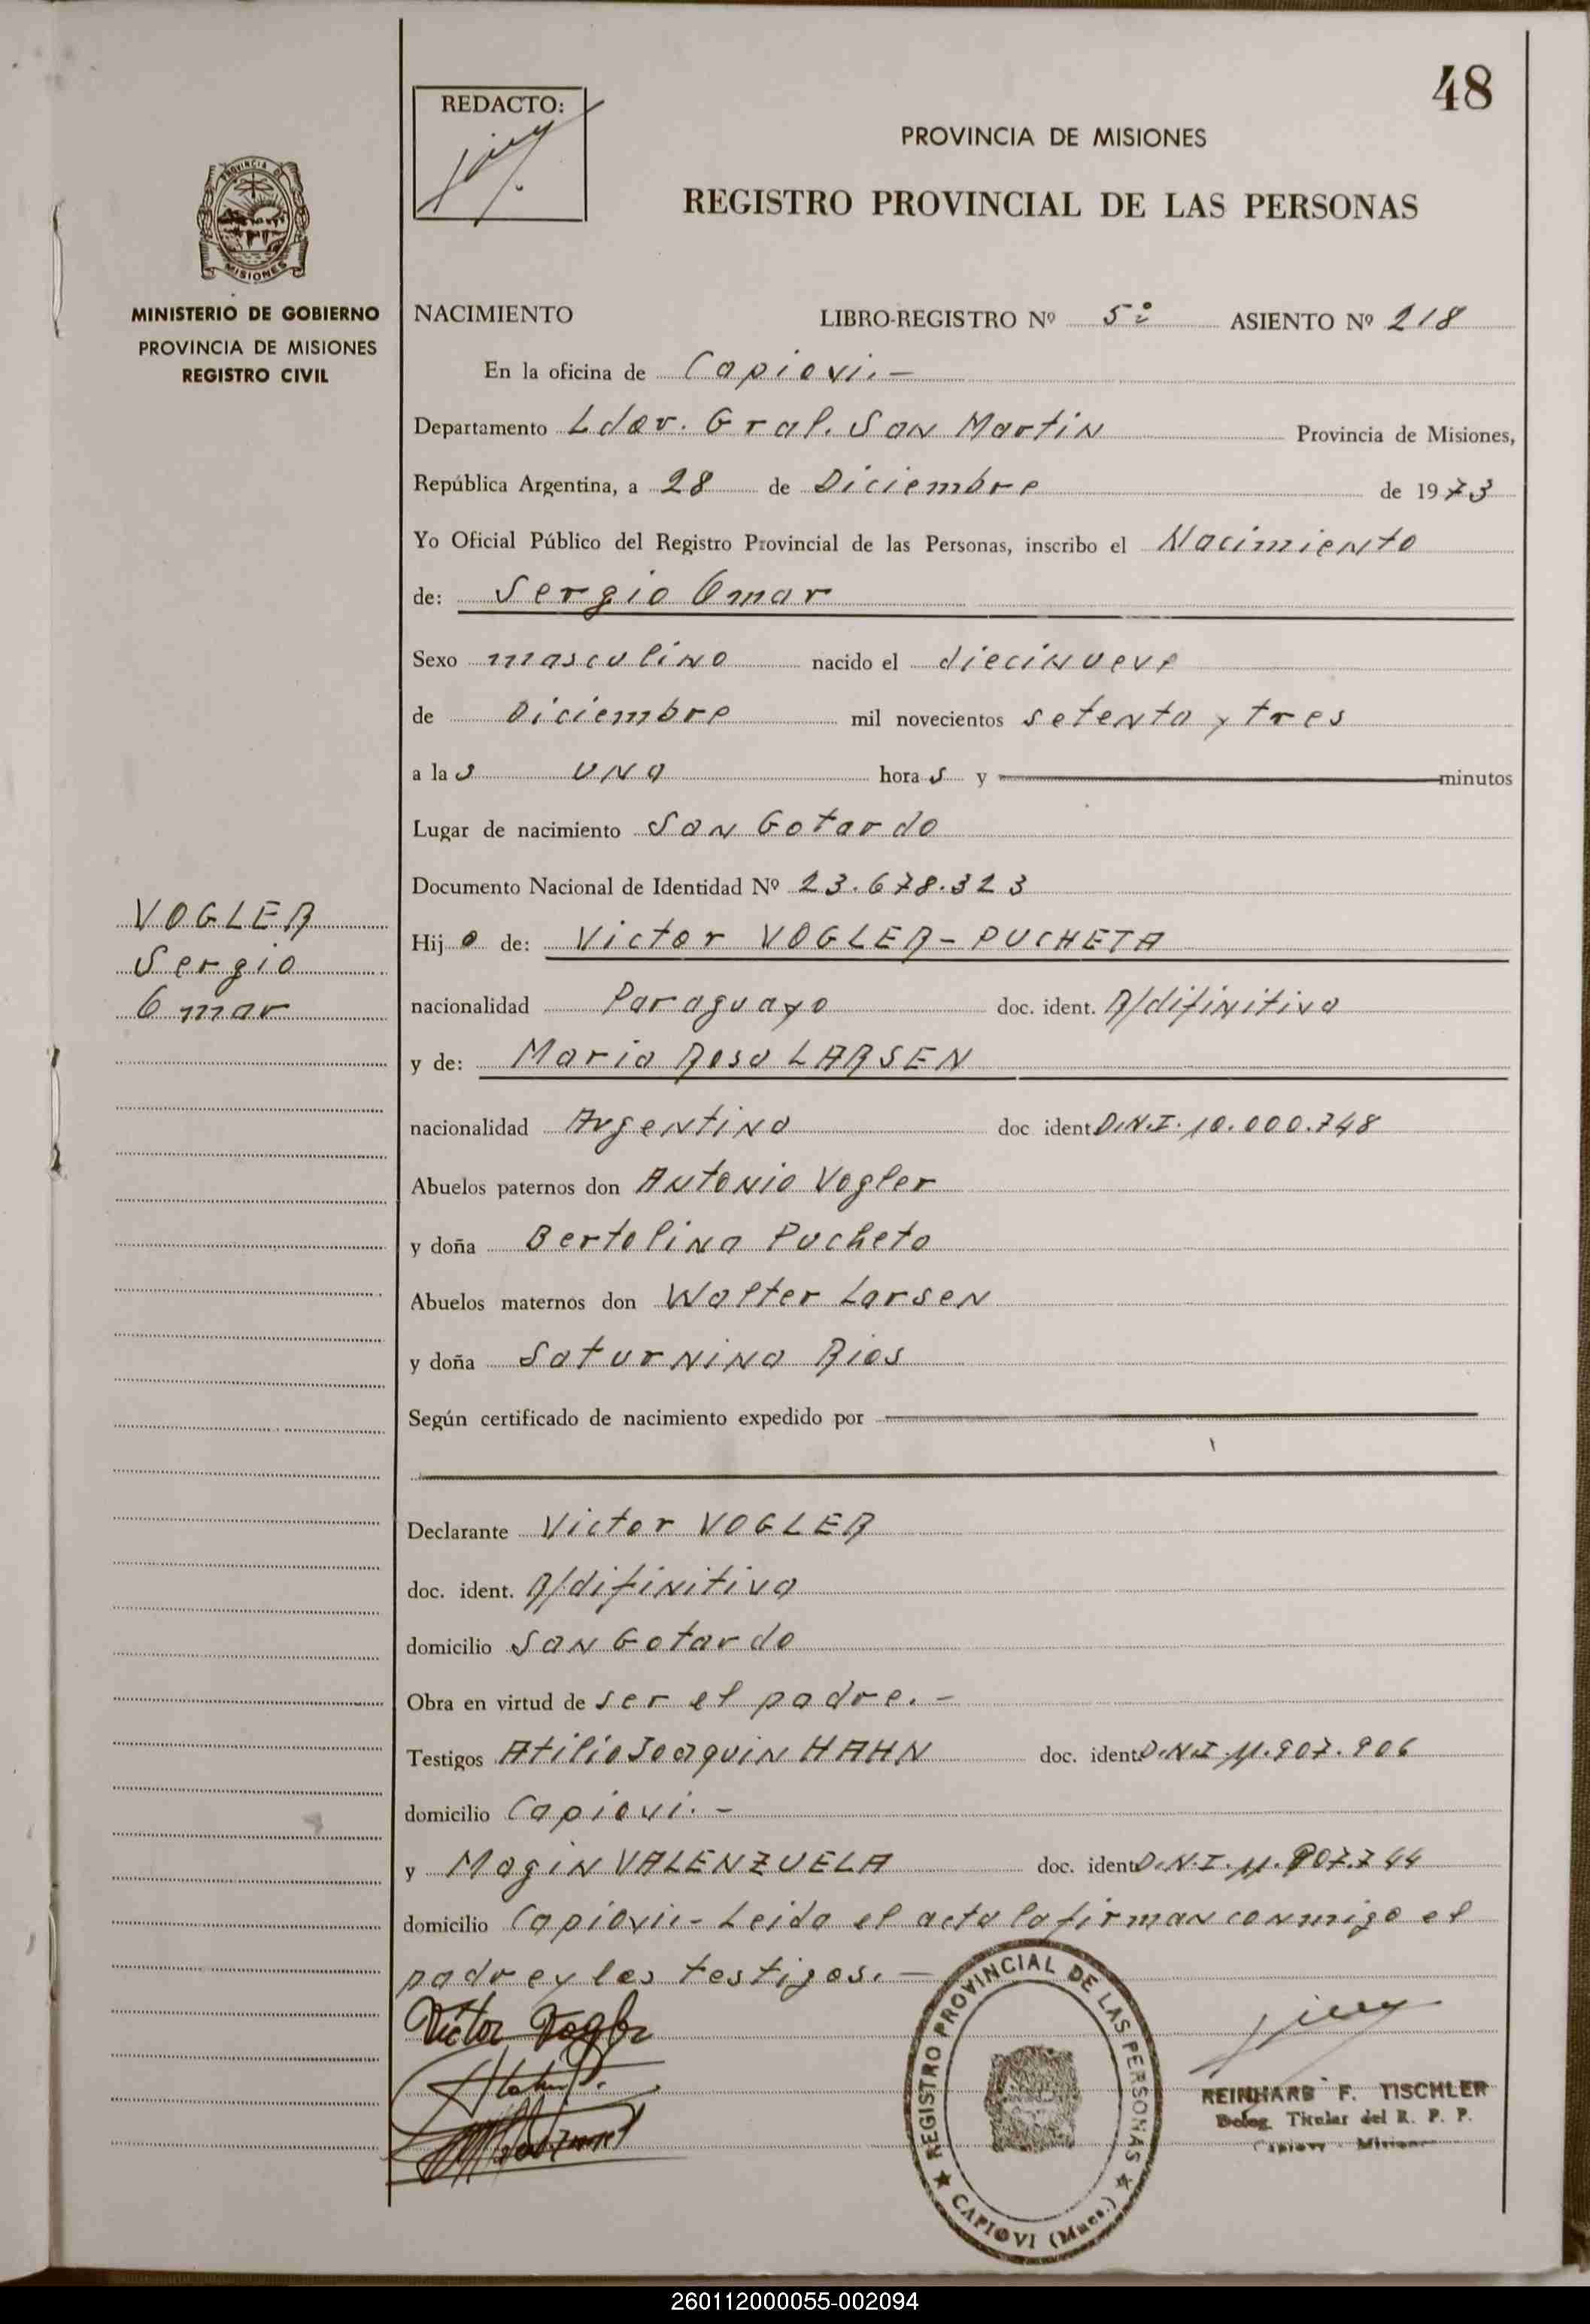 48
REDACTO:
PROVINCIA DE MISIONES
REGISTRO PROVINCIAL DE LAS PERSONAS
PROVINCIA DE
MISIONES
MINISTERIO DE GOBIERNO
PROVINCIA DE MISIONES
REGISTRO CIVIL
NACIMIENTO LIBRO-REGISTRO Nº 5º ASIENTO Nº 218
En la oficina de Capiovi.-
Departamento Ldor. Gral. San Martin Provincia de Misiones,
República Argentina, a 28 de Diciembre de 1973
Yo Oficial Público del Registro Provincial de las Personas, inscribo el Nacimiento
de: Sergio Omar
Sexo masculino nacido el diecinueve
de Diciembre mil novecientos setenta y tres
a las una horas y minutos
Lugar de nacimiento San Gotardo
Documento Nacional de Identidad Nº 23.678.323
VOGLER
Sergio
Omar
Hijo de: Victor VOGLER-PUCHETA
nacionalidad Paraguayo doc. ident. R/difinitiva
y de: Maria Rosa LARSEN
nacionalidad Argentina doc ident D.N.I. 10.000.748
Abuelos paternos don Antonio Vogler
y doña Bertolina Pucheta
Abuelos maternos don Walter Larsen
y doña Saturnina Rios
Según certificado de nacimiento expedido por
Declarante Victor VOGLER
doc. ident. R/difinitiva
domicilio San Gotardo
Obra en virtud de ser el padre.-
Testigos Atilio Joaquin HAHN doc. ident. D.N.I. 11.907.906
domicilio Capiovi.-
y Magin VALENZUELA doc. ident. D.N.I. 11.907.744
domicilio Capiovi.- Leida el acta la firman conmigo el
padre y los testigos.-
Victor Vogler
REGISTRO PROVINCIAL DE LAS PERSONAS
CAPIOVI (Mnes.)
REINHARD F. TISCHLER
Deleg. Titular del R. P. P.
Capiovi - Misiones
260112000055-002094